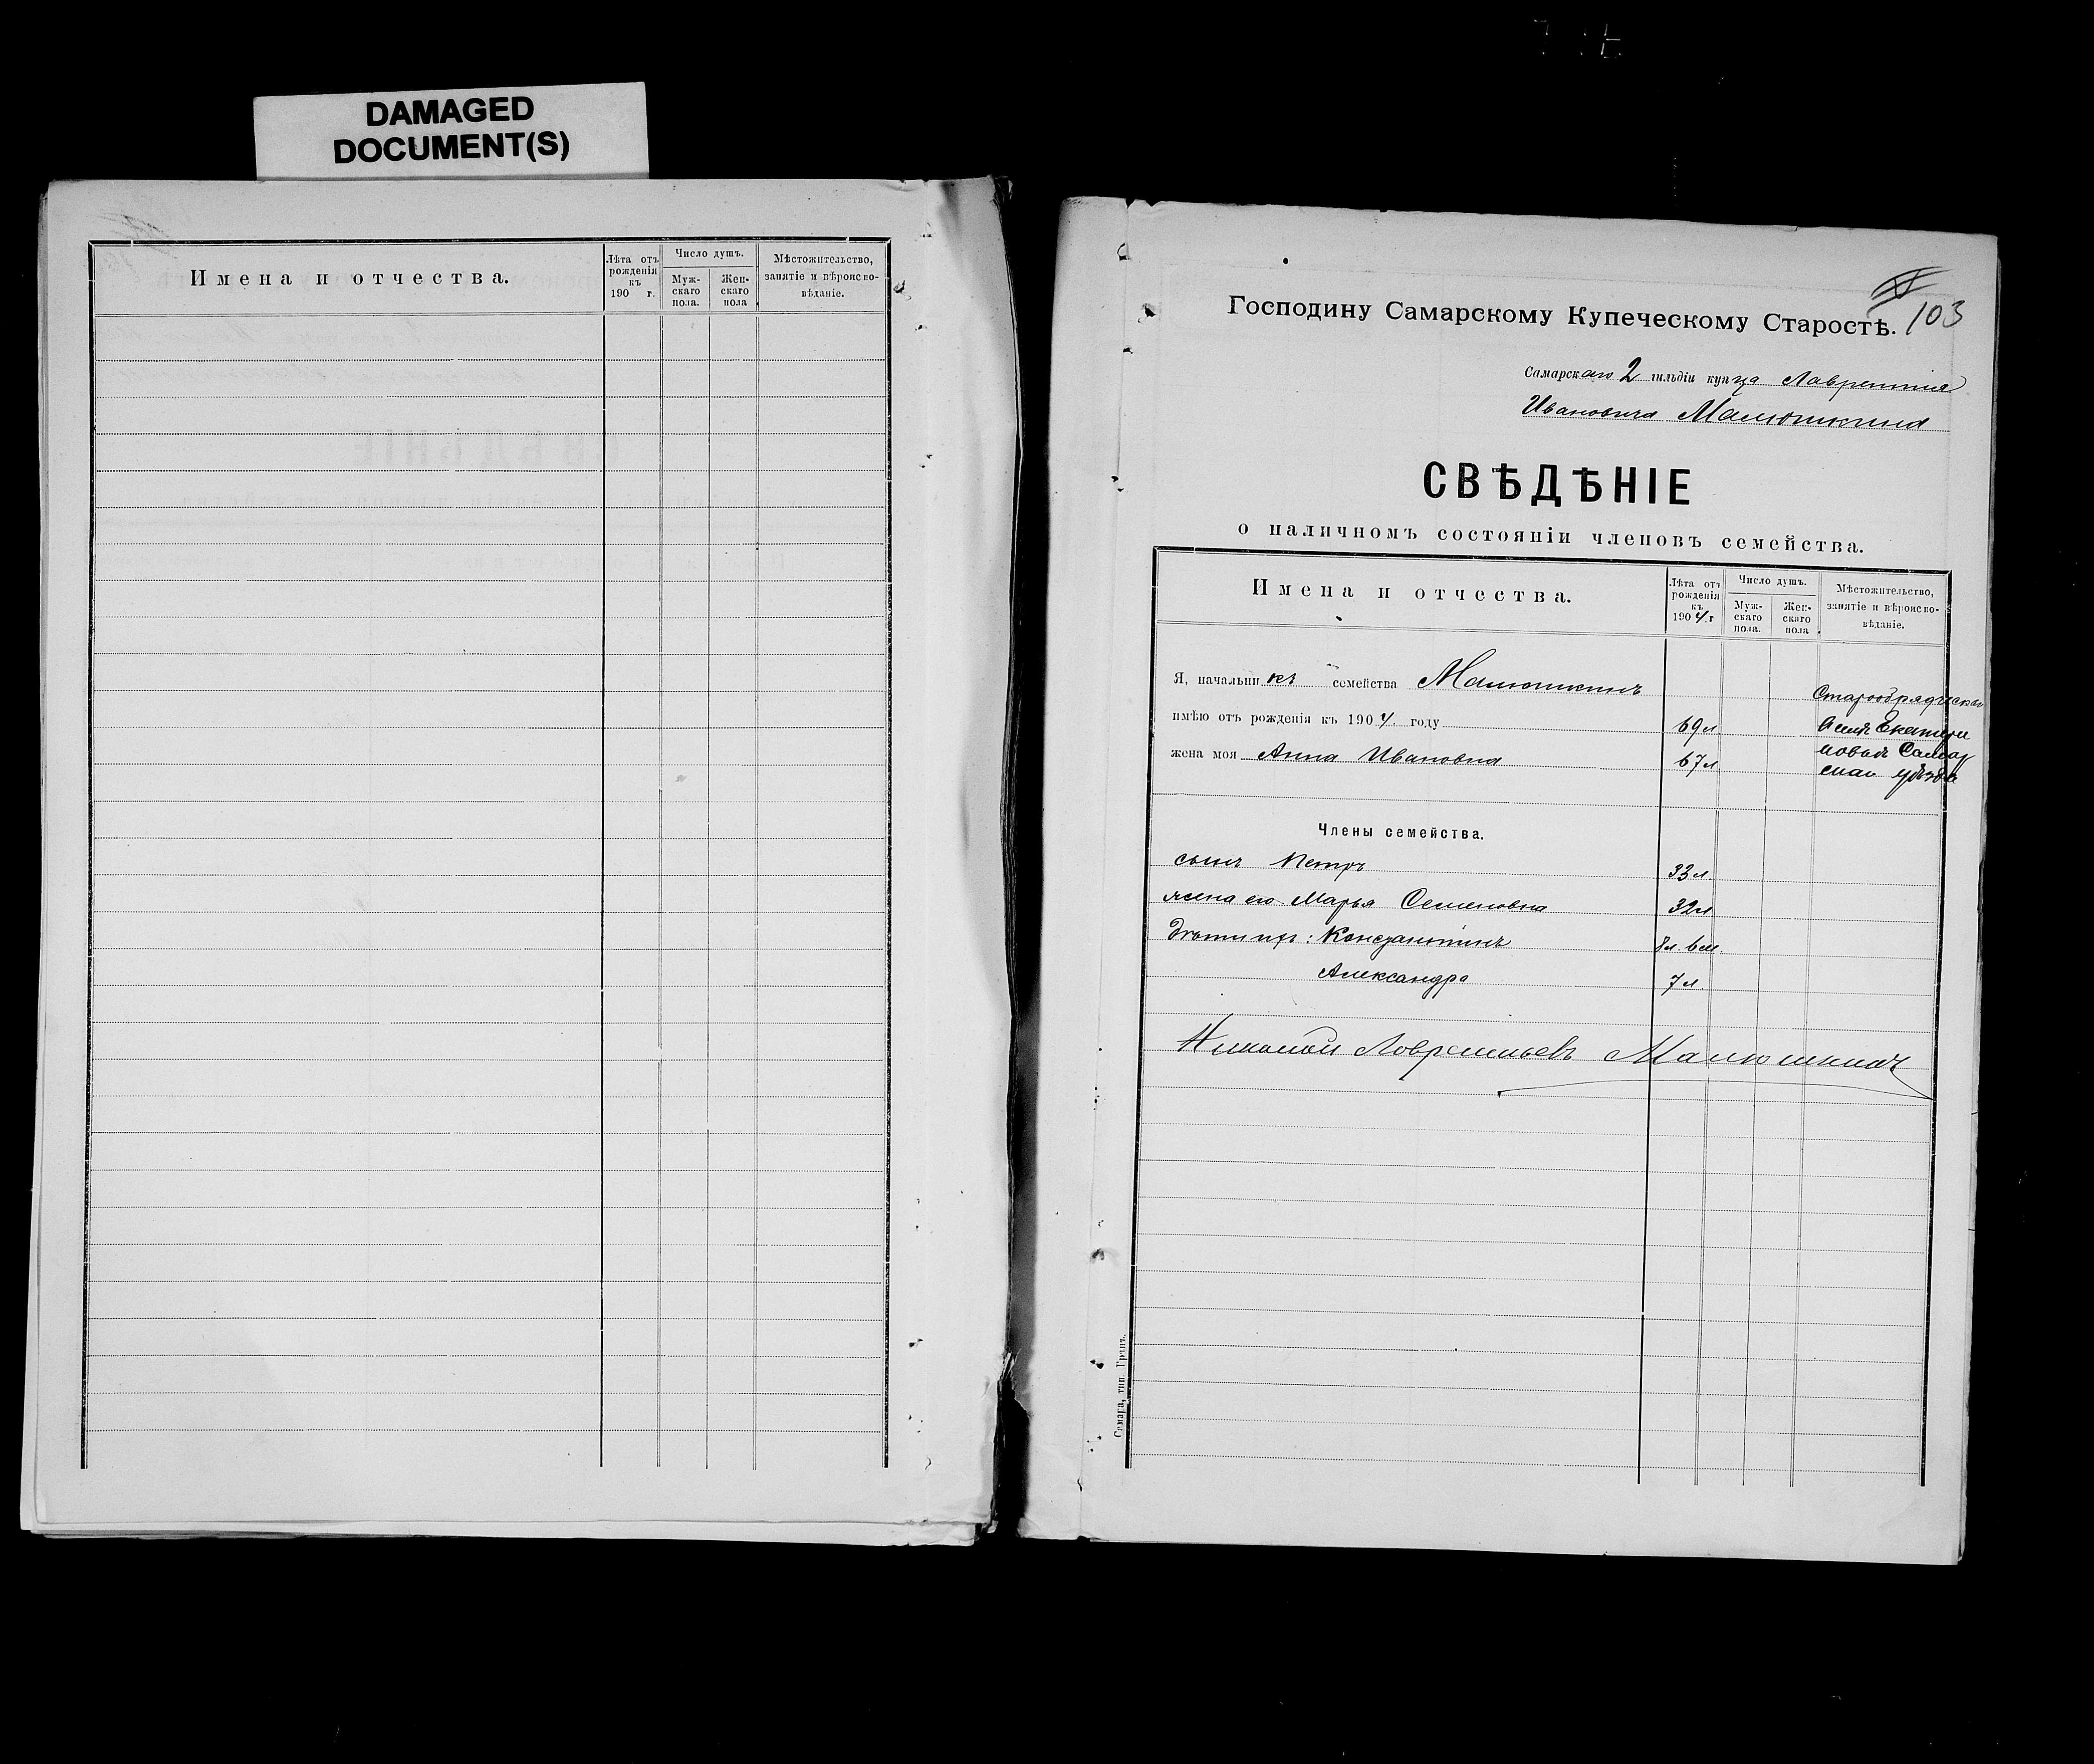 DAMAGED
DOCUMENT(S)
Имена и отчества.
Лѣта отъ рожденія къ 190 г.
Число душъ.
Муж-скаго пола.
Жен-скаго пола
Мѣстожительство, занятіе и вѣроиспо-вѣданіе.
103
Господину Самарскому Купеческому Старостѣ.
Самарскаго 2 гильдіи купца Лаврентія
Ивановича Малюшкина
СВѢДѢНІЕ
о наличномъ состояніи членовъ семейства.
Имена и отчества.
Лѣта отъ рожденія къ 1904 г
Число душъ.
Муж-скаго пола.
Жен-скаго пола
Мѣстожительство, занятіе и вѣроиспо-вѣданіе.
Я, начальникъ семейства Малюшкинъ
Старообрядческая
имѣю отъ рожденія къ 1904. году 69 л
въ селѣ Екатери
жена моя Анна Ивановна 67 л
новкѣ Самар
скаго уѣзда
Члены семейства.
сынъ Петръ 33 л.
жена его Марья Семеновна 32 л
дѣти их: Констянтинъ 8 л. 6 м.
Александра 7 л.
Николай Лаврентьевъ Малюшкинъ
Самара, тип. Гранъ.